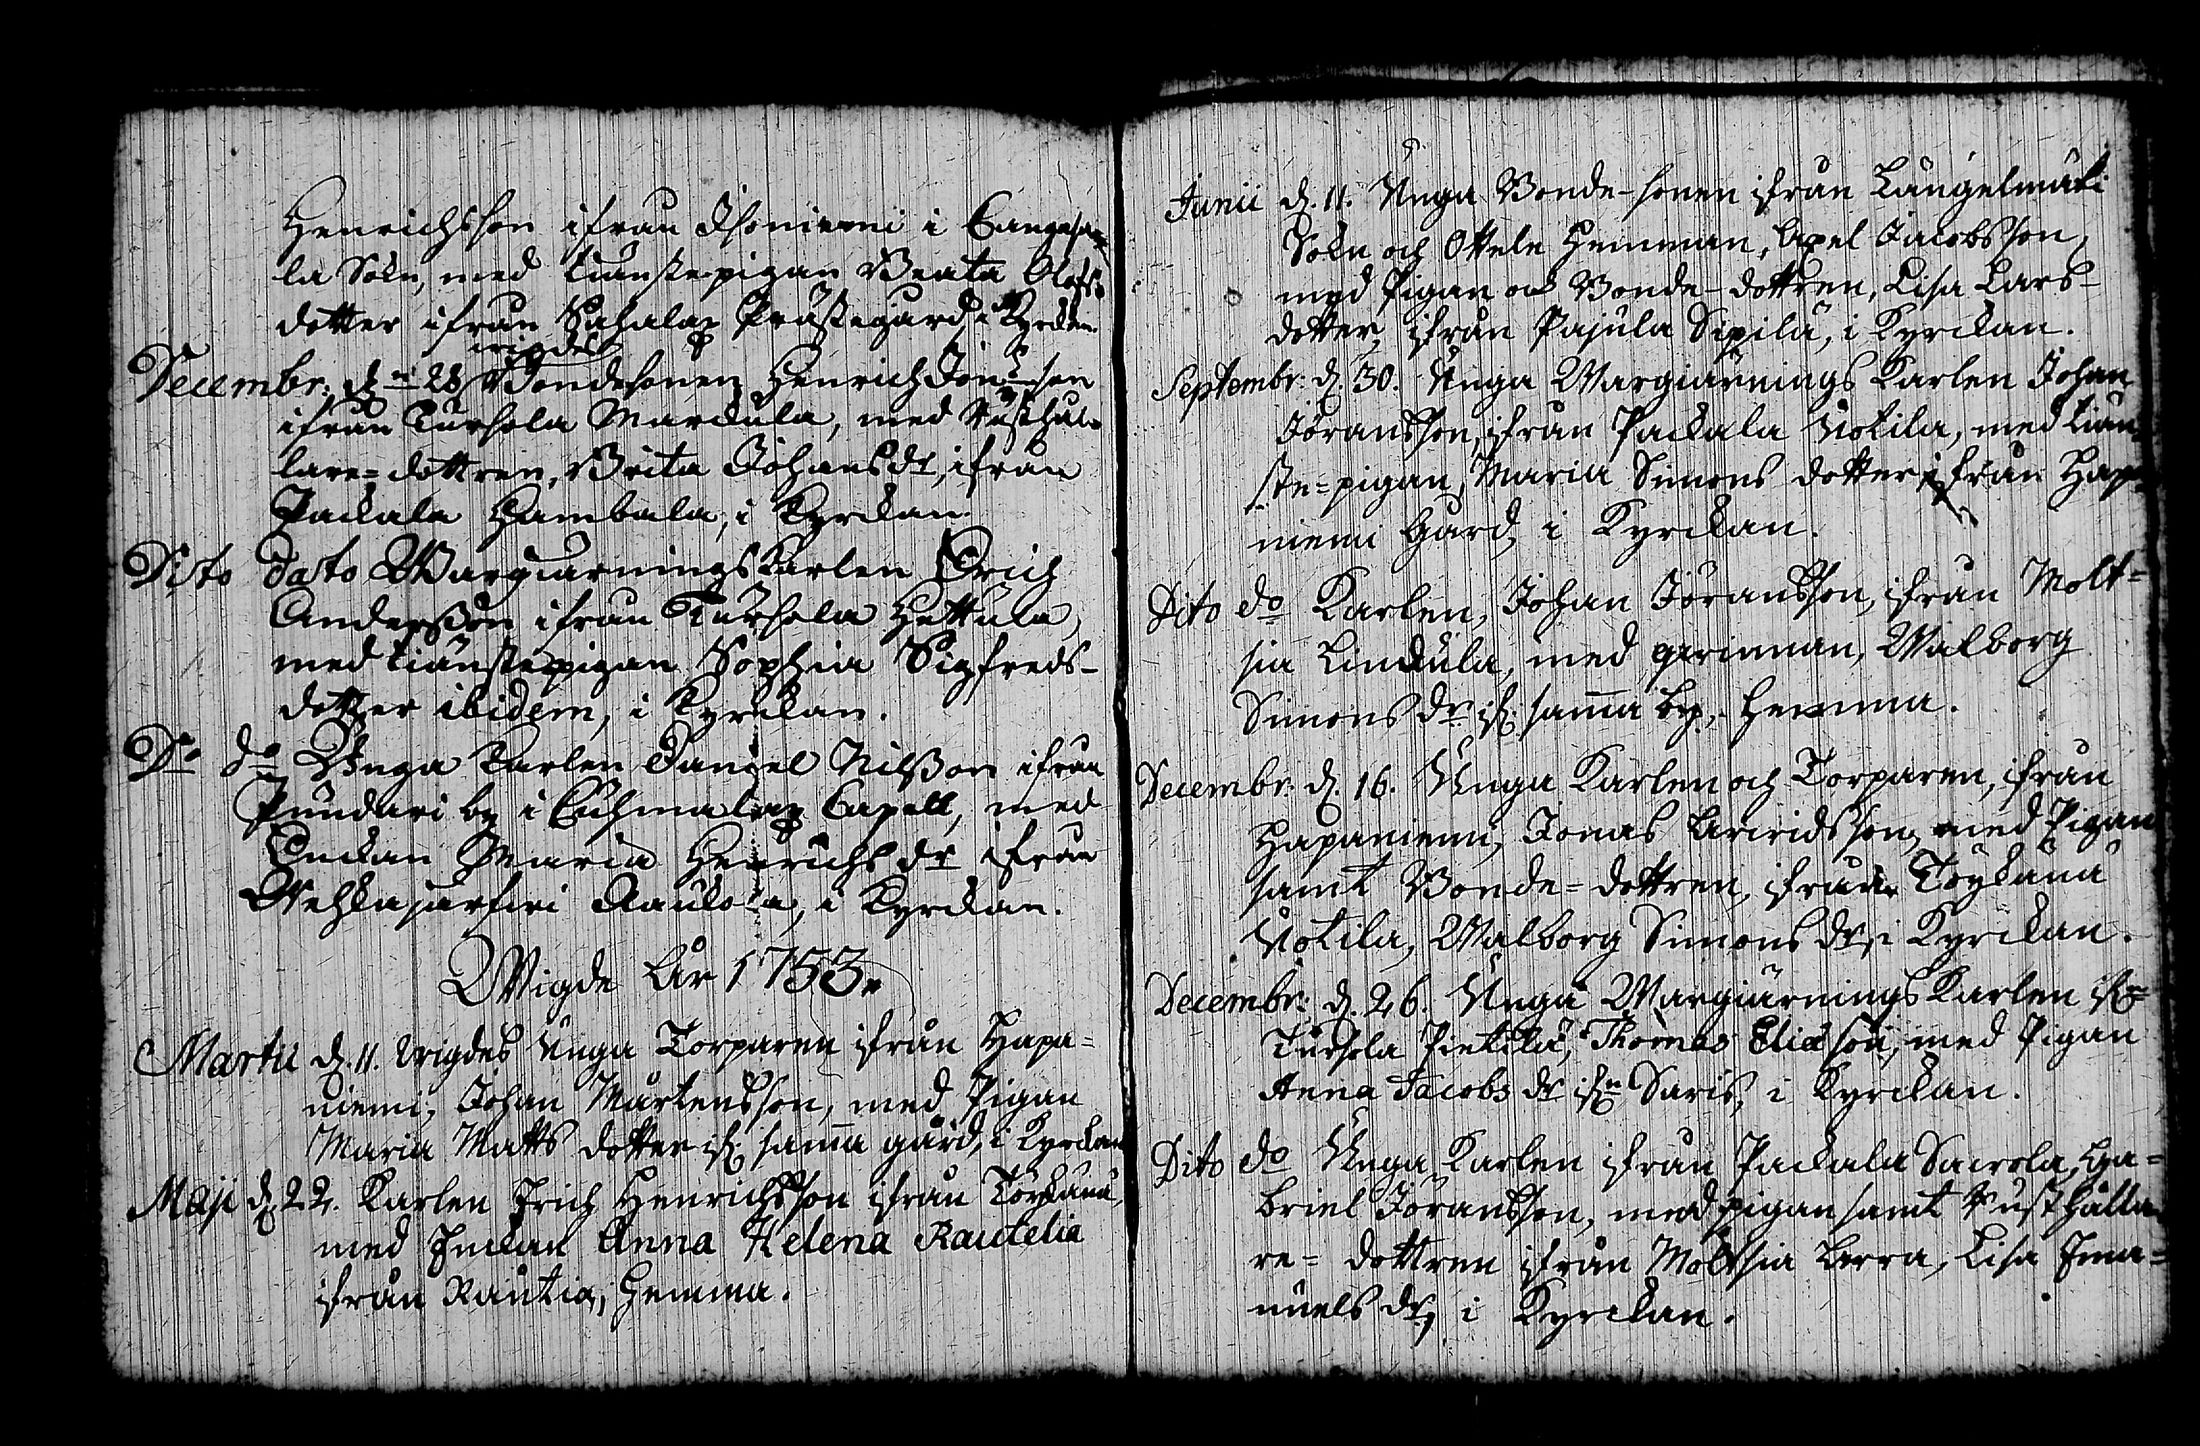 Henrichsson ifrån Ihoniemi i Cangasa-
la Sokn, med tiänstepigan Beata Olofs-
dotter ifrån Sahalax Prästegård, i Kyrckan.
wigdes
Decembr: d. 28 Bondesonen Henrich Jönsson
ifrån Tursola Marckula, med Rusthål-
lare-dottren, Brita Johansdr, ifrån
Packala Hambala, i Kyrckan.
Dito dato Wargiärningskarlen Erich
Andersson ifrån Tursola Hettula,
med tiänstepigan Sophia Sigfreds-
dotter ibidem, i Kyrckan.
Do do Unga Karlen Daniel Nilsson ifrån
Pundari by i Cuhmalax Capell, med
Enckan Maria Henrichs dr ifrån
Wehkajärfwi Kaukola, i Kyrckan.
Wigde År 1753.
Martii d. 11. wigdes Unga Torparen ifrån Hapa-
niemi, Johan Mårtensson, med Pigan
Maria Matts dotter if: samma gård, i Kyrckan
Maji d. 22. Karlen Erich Henrichsson ifrån Töykänä,
med Enckan Anna Helena Rautelia
ifrån Rautia, hemma.
Junii d. 11. Unga Bonde-sonen ifrån Längelmäki
Sokn och Ottela Hemman, Axel Jacobsson,
med Pigan och Bonde-dottren, Lisa Lars-
dotter, ifrån Pajula Sipilä, i Kyrckan.
Septembr. d. 30. Unga Wargiärnings Karlen Johan
Jöransson, ifrån Packala Uotila, med tiän-
ste-pigan, Maria Simons dotter, ifrån Hapa-
niemi Gård, i Kyrckan.
Dito do Karlen, Johan Jöransson, ifrån Molt-
sia Linckula, med qwinnan, Walborg
Simons dr if: samma by, hemma.
Decembr. d. 16. Unga Karlen och Torparen, ifrån
Hapaniemi, Jonas Arwidsson, med Pigan
samt Bonde-dottren, ifrån Töykänä
Uotila, Walborg Simons dr, i Kyrckan.
Decembr: d. 26. Unga Wargiärnings Karlen ifrn
Tursola Pietilä, Thomas Eliæson, med Pigan
Anna Jacobs dr ifrn Saris, i Kyrckan.
Dito do Unga Karlen ifrån Packala Sawola, Ga-
briel Jöransson, med pigan samt Rusthålla-
re-dottren ifrån Moltsia Erra, Lisa Ema-
nuels dr, i Kyrckan.